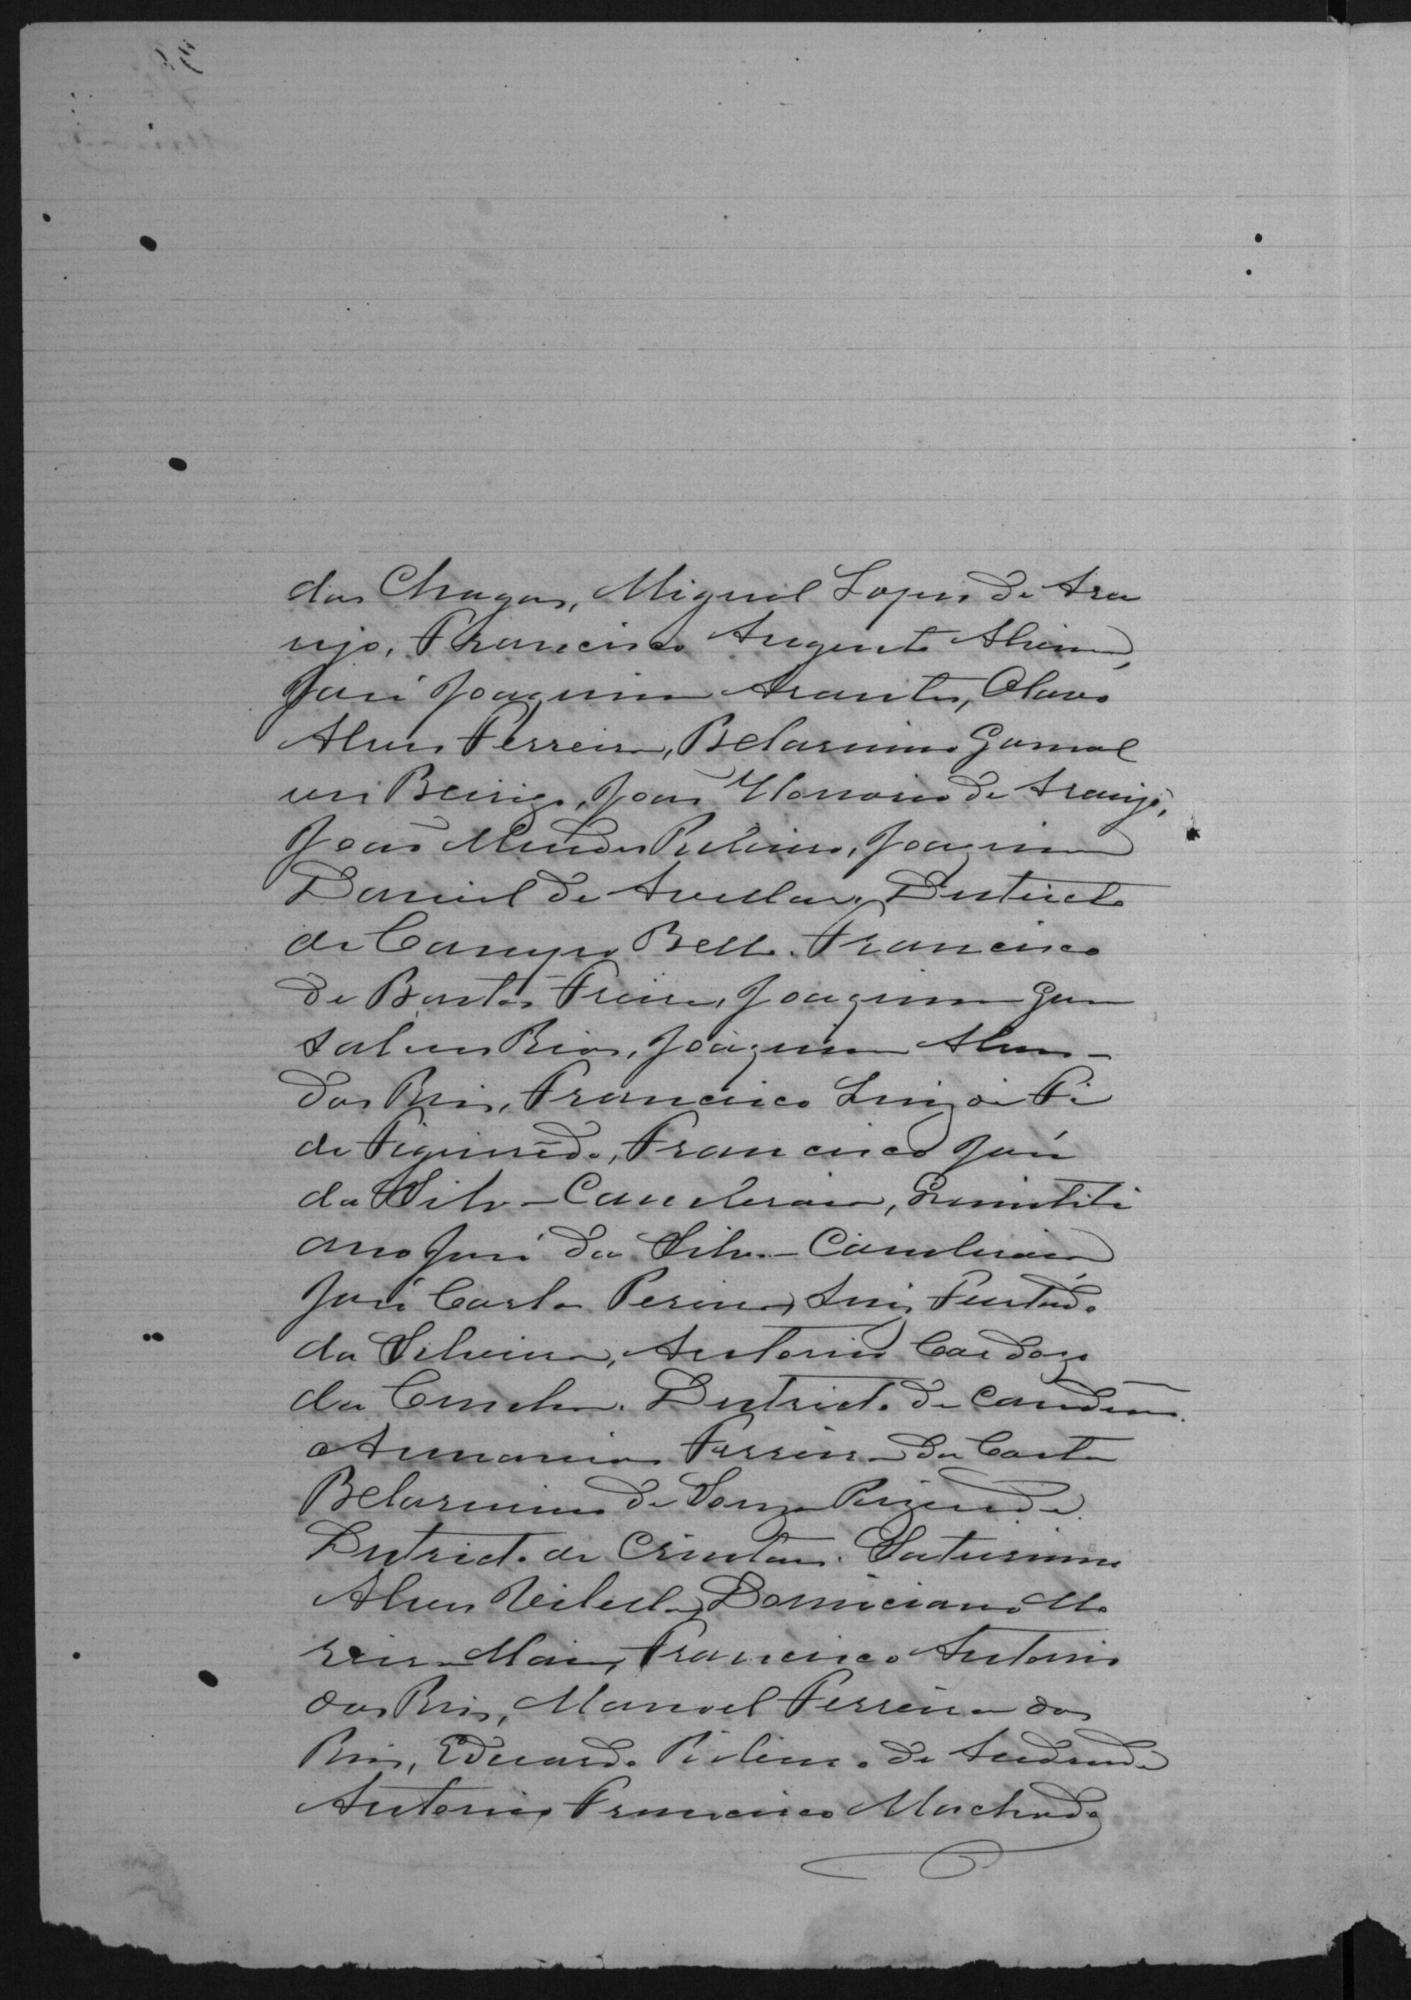 das Chagas, Miguel Lopes de Ara
ujo, Francisco Augusto Alves,
José Joaquim Arantes, Olavo
Alves Ferreira, Belarmino Gonsal
ves Beirigo, João Honorio de Araujo,
João Mendes Ribeiro, Joaquim
Daniel de Avellar. Districto
de Campo Bello. Francisco
de Bastos Freire, Joaquim Gon
salves Rios, Joaquim Alves
dos Reis, Francisco Luiz de Fi
de Figueiredo, Francisco José
da Silva
ano José da Silva
José Carlos Pereira, Luiz Furtado
da Silveira, Antonio Cardozo
da Cunha. Districto de Candeias.
Ferreira da Costa
Belarmino de Souza Rezende.
Districto de Cristaes. Saturnino
Alves Vilela, Domiciano Mo
reira Maia, Francisco Antonio
dos Reis, Manoel Ferreira dos
Reis, Eduardo Ribeiro de Andrade
Antonio Francisco Machado